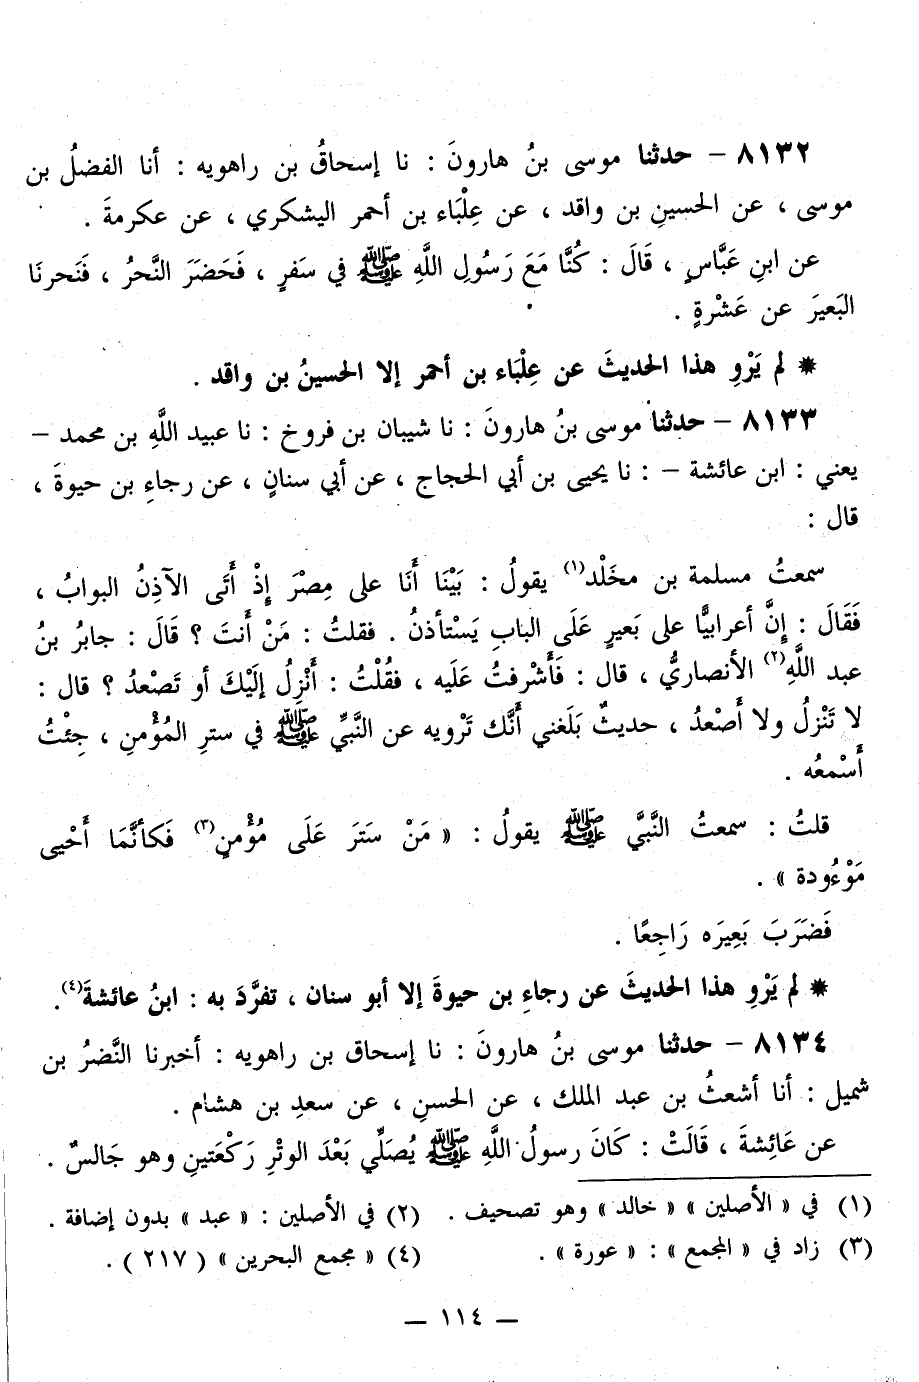 ٨١٣٢ – حدثنا موسى بنُ هارونَ : نا إسحاقُ بن راهويه : أنا الفضلُ بن
موسى ، عن الحسينِ بن واقد ، عن عِلْبَاء بن أحمر اليشكري ، عن عكرمةَ .
عن ابنِ عَبَّاسٍ ، قَالَ : كُنَّا مَعَ رَسُولِ اللَّهِ ﷺ في سَفرٍ ، فَحَضَرَ النَّحرُ ، فَنَحرنَا
البَعيرَ عن عَشْرةٍ .
* لم يَرْوِ هذا الحديثَ عن عِلْبَاء بن أحمر إلا الحسينُ بن واقد .
٨١٣٣ – حدثنا موسى بنُ هارونَ : نا شيبان بن فروخ : نا عبيد اللَّهِ بن محمد –
يعني : ابن عائشة – : نا يحيى بن أبي الحجاج ، عن أبي سنانٍ ، عن رجاءِ بن حيوةَ ،
قال :
سمعتُ مسلمة بن مخَلْد(١) يقولُ : بَيْنَا أَنَا على مِصْرَ إِذْ أَتَى الآذِنُ البوابُ ،
فَقَالَ : إِنَّ أعرابيًّا على بَعيرٍ عَلَى البابِ يَسْتأذنُ . فقلتُ : مَنْ أَنتَ ؟ قَالَ : جابرُ بنُ
عبد اللَّهِ(٢) الأنصاريُّ ، قال : فَأَشْرفتُ عَلَيه ، فقُلْتُ : أَنْزِلُ إلَيْكَ أو تَصْعدُ ؟ قال :
لا تَنْزلُ ولا أَصْعدُ ، حديثٌ بَلَغني أَنَّك تَرْويه عن النَّبيِّ ﷺ في سترِ المُؤْمنِ ، جِئْتُ
أَسْمعُه .
قلتُ : سمعتُ النَّبيَّ ﷺ يقولُ : « مَنْ سَتَرَ عَلَى مُؤْمنٍ(٣) فَكأنَّمَا أَحْيى
مَوْءُودة » .
فَضَرَبَ بَعِيرَه رَاجِعًا .
* لم يَرْوِ هذا الحديثَ عن رجاءِ بن حيوةَ إلا أبو سنان ، تفرَّدَ به : ابنُ عائشةَ(٤) .
٨١٣٤ – حدثنا موسى بنُ هارونَ : نا إسحاق بن راهويه : أخبرنا النَّضرُ بن
شميل : أنا أشعثُ بن عبد الملك ، عن الحسنِ ، عن سعدِ بن هشام .
عن عَائِشةَ ، قَالَتْ : كَانَ رسولُ اللَّهِ ﷺ يُصَلِّي بَعْدَ الوتْرِ رَكْعَتينِ وهو جَالسٌ .
(١) في « الأصلين » « خالد » وهو تصحيف . (٢) في الأصلين : « عبد » بدون إضافة .
(٣) زاد في « المجمع » : « عورة » . (٤) « مجمع البحرين » ( ٢١٧ ) .
– ١١٤ –